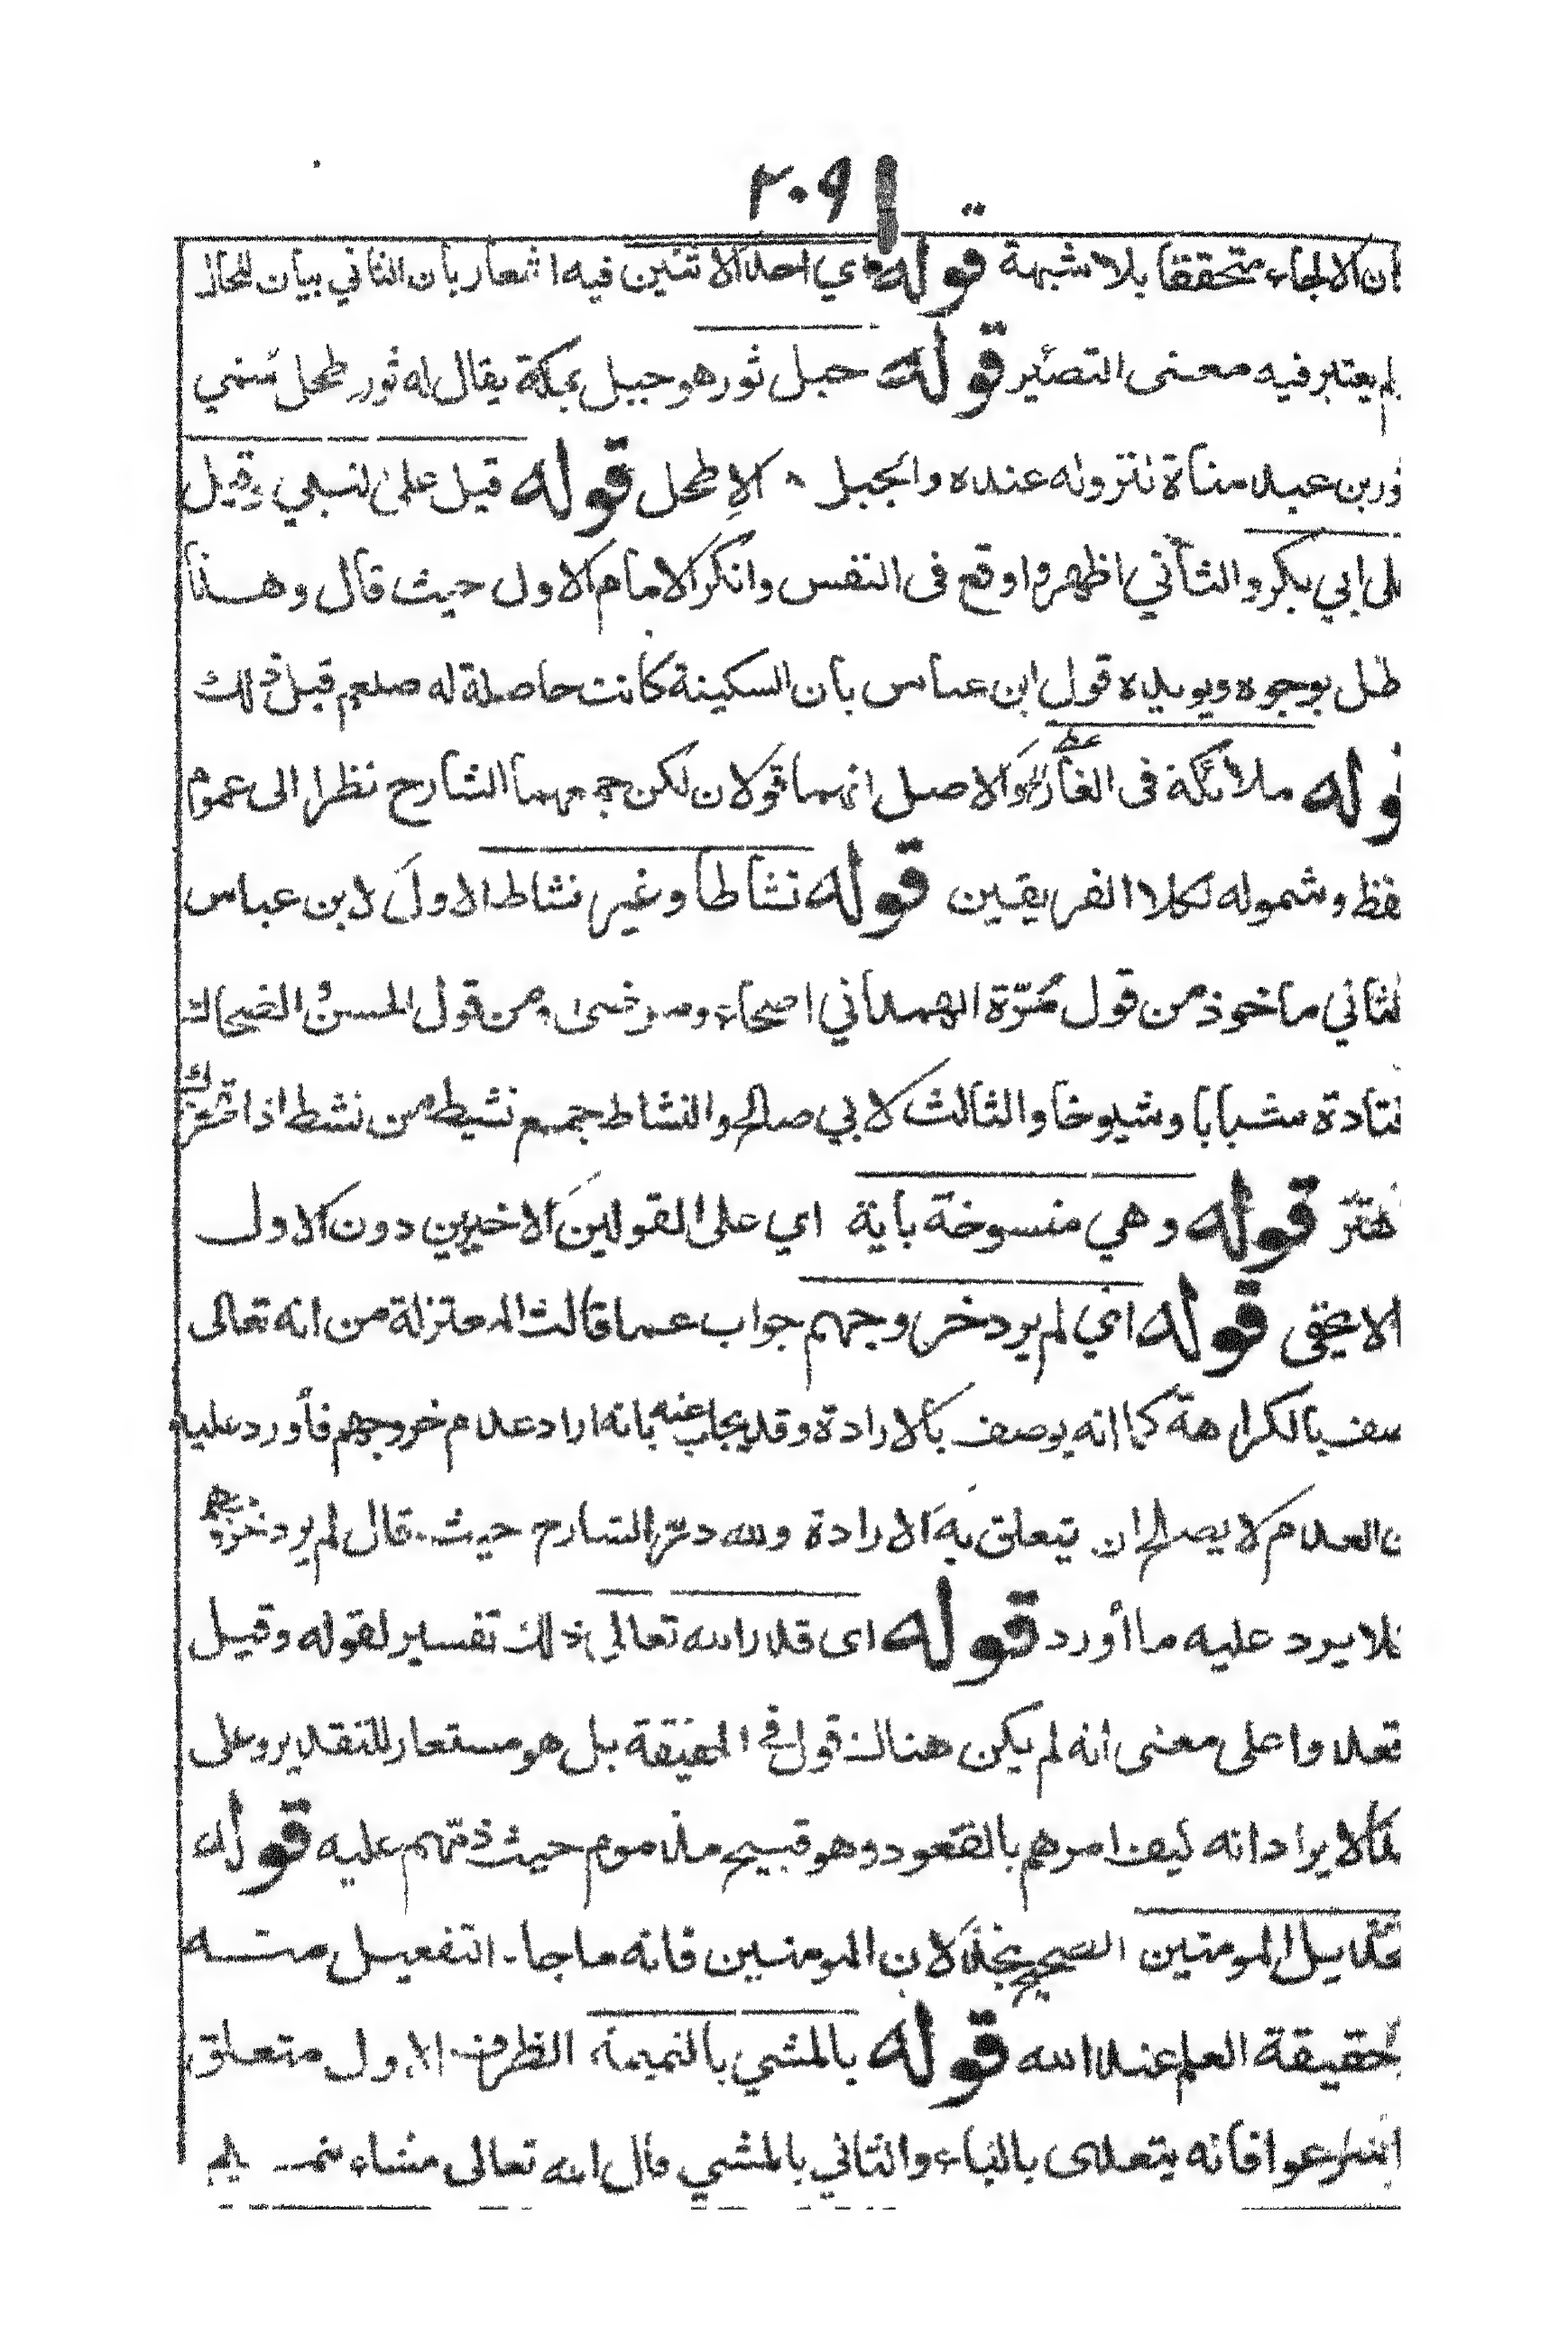 ٢٠٩
ان الالجاء متحققا بلا شبهة قوله اي احد الاثنين فيه اشعار بان الثاني بيان للحال
لم يعتبر فيه معنى التصيير قوله جبل ثور هو جبل بمكة يقال له ثور طحل سمي
ور بن عبد مناة لنزوله عنده والجبل الاطحل قوله قيل على النبي وقيل
لى ابي بكر والثاني اظهر واوقع فى النفس وانكر الامام الاول حيث قال وهذا
طل بوجوه ويويده قول ابن عباس بان السكينة كانت حاصلة له صلعم قبل ذلك
وله ملائكة فى الغار الخ والاصل انهما قولان لكن جمعهما الشارح نظرا الى عموم
فظ وشموله لكلا الفريقين قوله نشاطا وغير نشاط الاول لابن عباس
لثاني ماخوذ من قول مرّة الهمداني اصحاء ومرضى ومن قول الحسن والضحاك
قتادة شبابا وشيوخا والثالث لابي صالح والنشاط جمع نشيط من نشط اذا تحرك
هتز قوله وهي منسوخة بأية اي على القولين الاخيرين دون الاول
الا يخفى قوله اي لم يرد خروجهم جواب عما قالت المعتزلة من انه تعالى
صف بالكراهة كما انه يوصف بالارادة وقد يجاب عنه بانه اراد عدم خروجهم فأورد عليه
ن العدم لا يصلح ان يتعلق به الارادة ولله درّ الشارح حيث قال لم يرد خروجهم
فلا يرد عليه ما أورد قوله اى قدر الله تعالى ذلك تفسير لقوله وقيل
قعدوا على معنى انه لم يكن هناك قول في الحقيقة بل هو مستعار للتقدير وعلى
الايراد انه كيف امرهم بالقعود وهو قبيح مذموم حيث ذمّهم عليه قوله
بتخذيل المومنين الصحيح بخذلان المومنين فانه ما جاء التفعيل منه
حقيقة العلم عند الله قوله بالمشي بالنميمة الظرف الاول متعلق
اسرعوا فانه يتعدى بالباء والثاني بالمشي قال الله تعالى مشاء بنميم